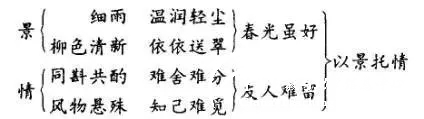 细雨 温润轻尘
景 春光虽好
柳色清新 依依送翠
以景托情
同斟共酌 难舍难分
情 友人难留
风物悬殊 知己难觅